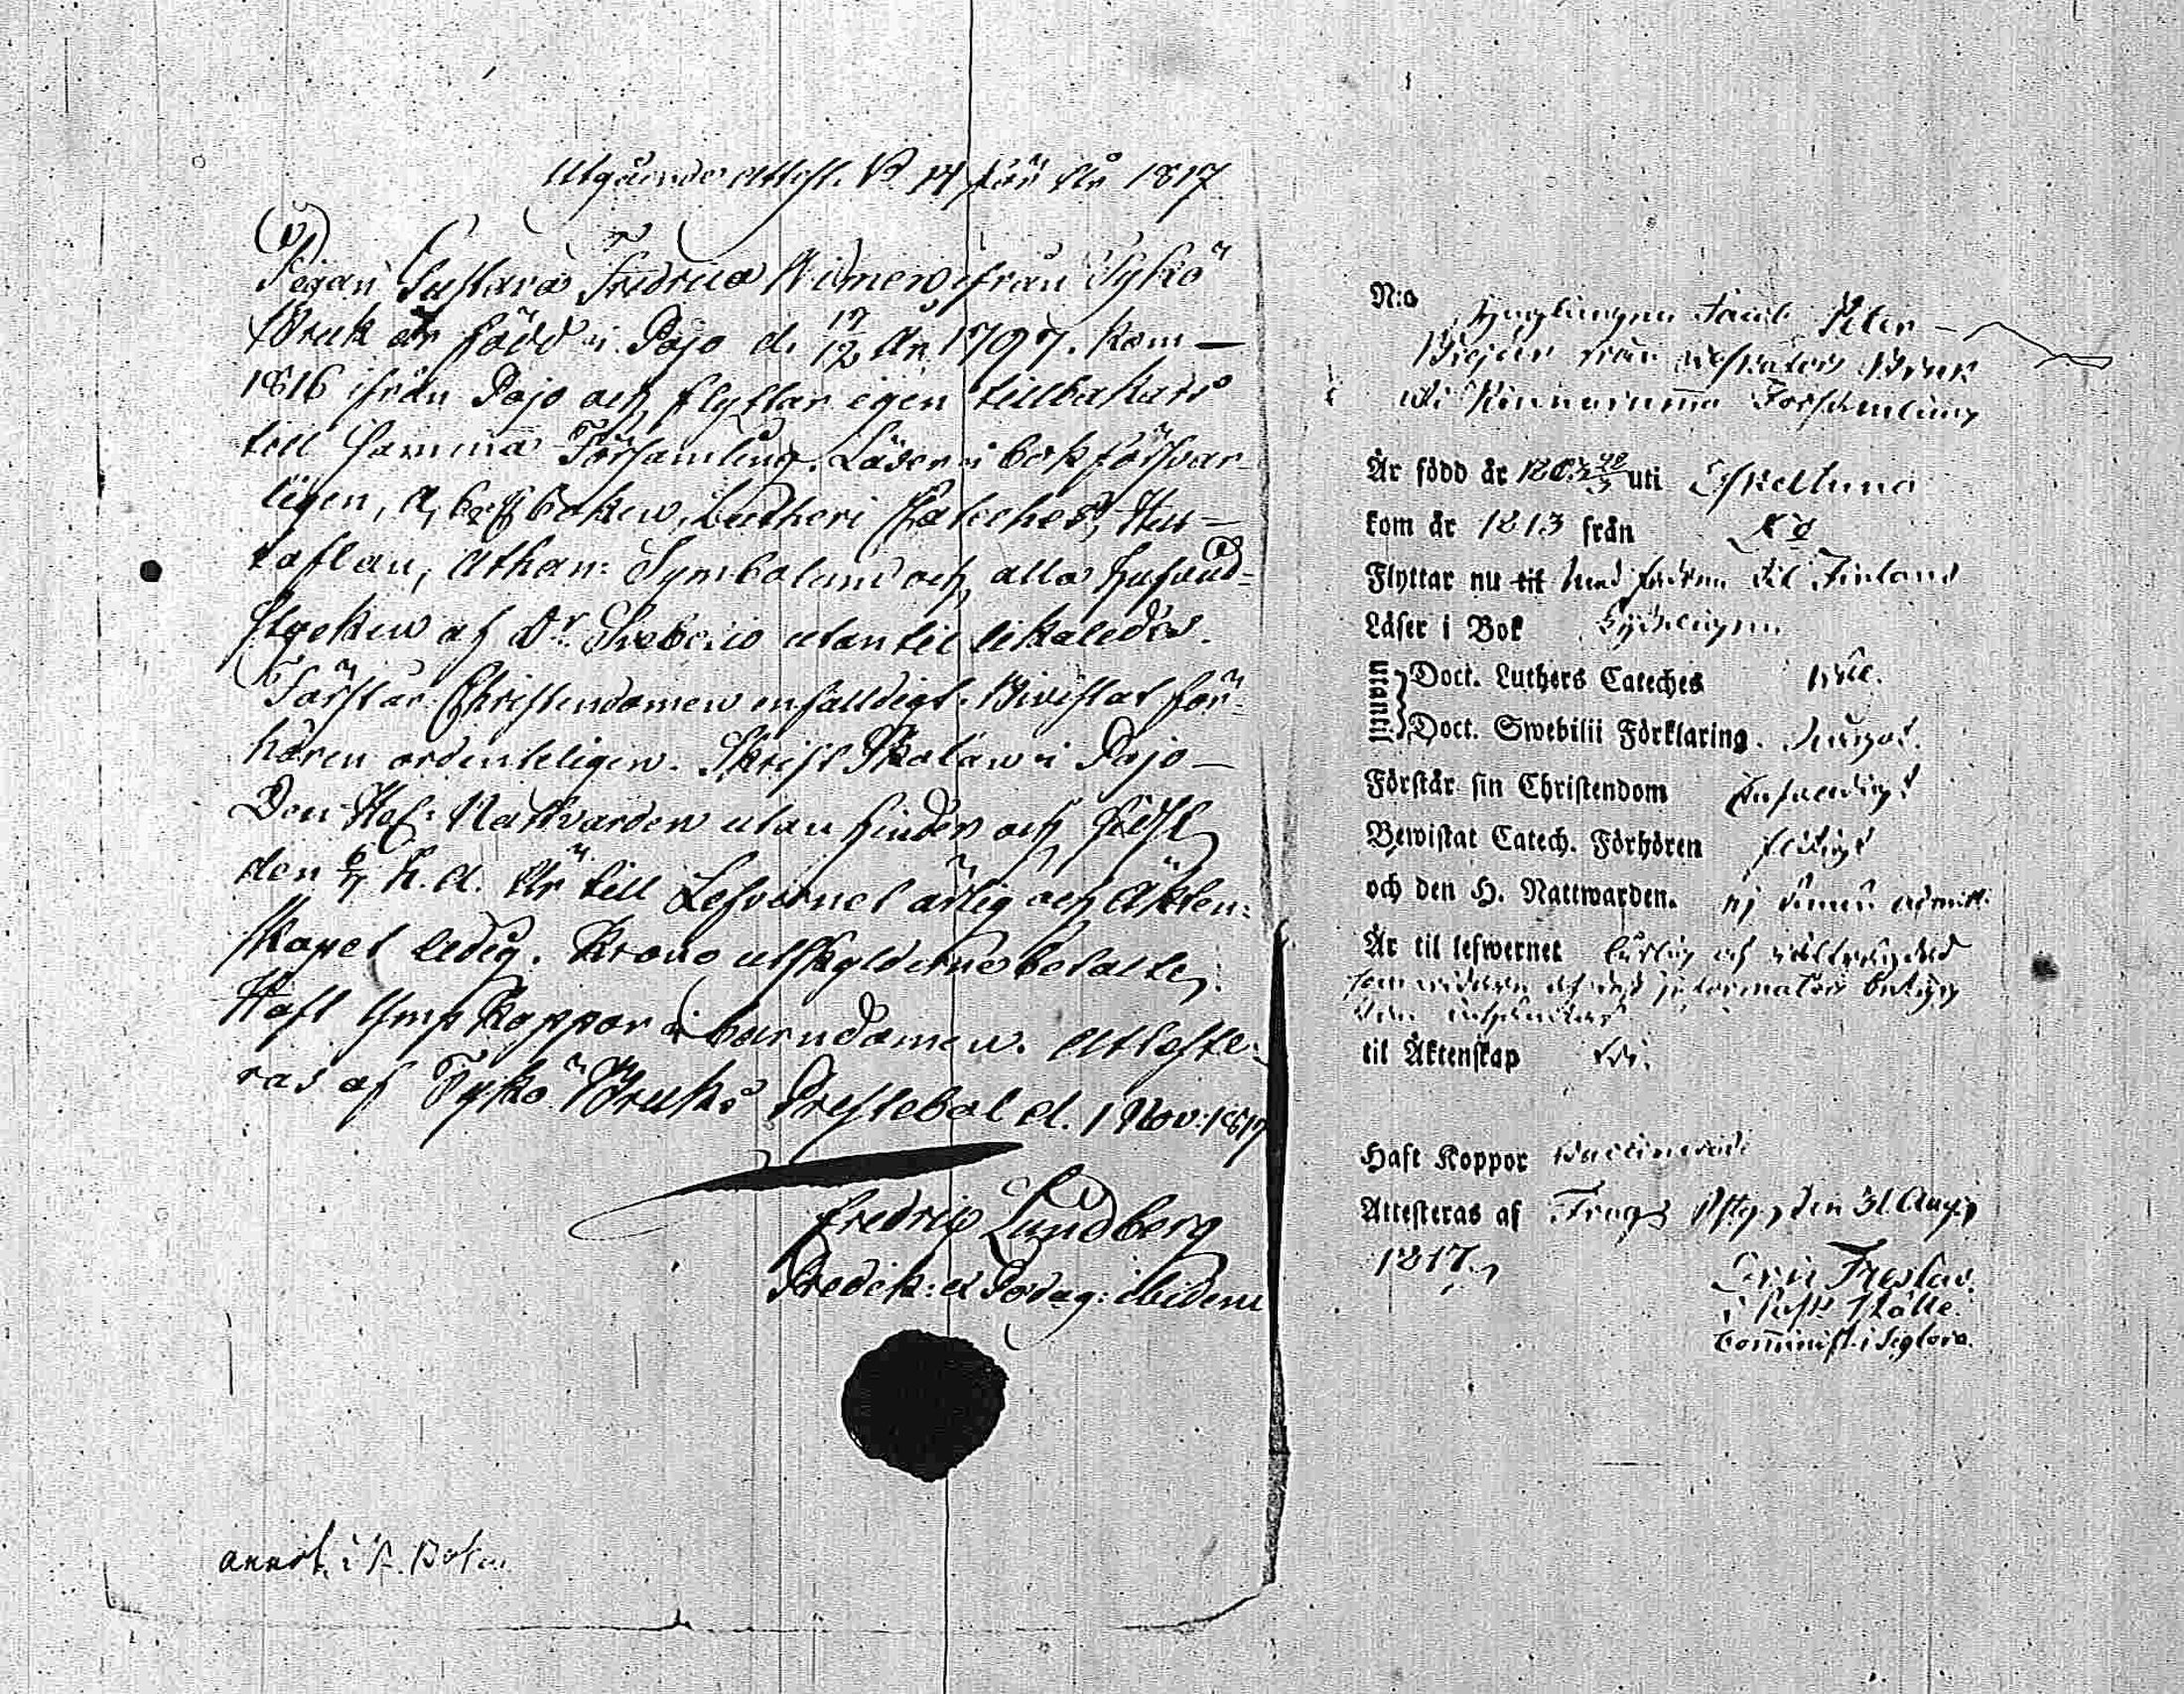 Utgående Attest. No 14 för År 1817
Pigan Gustava Fredrica ifrån Tykö
Bruk är född i Pojo d. 17/12 År 1797. kom
1816 ifrån Pojo och flyttar igen tillbakars
till samma Församling. Läser i bok försvar-
ligen, A, b, c, boken, Lutheri Cateches, Hus-
taflan, Athan: Symbolum och alla Hufvud-
stycken af Dr. Svebelio utantil likaledes.
Förstår Christendomen enfalldigt. Bivistat för-
hören ordenteligen. Skrift Skolan i Pojo
Den Hel: Nattvarden utan hinder och sidst
den h. a. Är till Lefvernet ärlig och Äkten-
skapet ledig. Krono utskylderne betalte.
Haft Ymp Koppor i barndomen. Atteste-
ras af Tykö Bruks Prestebol d. 1 Nov: 1817
Fredric Lundberg
Predik: et Pædag: ibidem
annot. i K. Boken
N:o Ynglingen Jacob Peter
från Bruk
uti Kinnarumma Församling
Är född år 180 uti
kom år 1813 från
Flyttar nu til med fadren til Finland
Läser i Bok
utantil Doct. Luthers Cateches wäl.
Doct. Swebilii Förklaring. något.
Förstår sin Christendom Enfaldigt
Bewistat Catech. Förhören flitigt
och den H. Nattwarden. ej ännu admitt.
Är til lefwernet ärlig och
som widare af
til Äktenskap
Haft Koppor Vaccinerad
Attesteras af den 31 Aug.
1817.
Comminist. i Seglora.